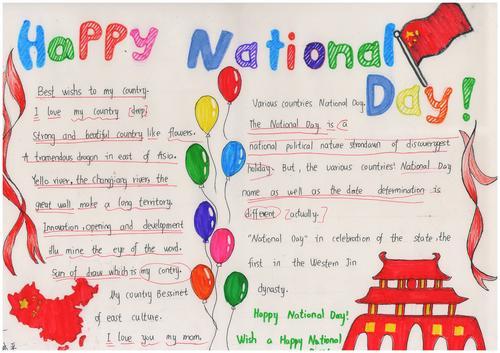 Happy National Day!
Best wishes to my country.
I love my country (deep)
Strong and beatiful country like flowers.
A tremendous dragon in east of Asia.
Yello river, the changjiang river, the
great wall make a long territory.
Innovation, opening and development
illu mine the eye of the word.
Sun of draw which is my contry.
My country Bessinet
of east culture.
I love you my mom.
Various countries National Day.
The National Day is a
national political nature
holiday. But, the various countries' National Day
name as well as the date determination is
different (actually.)
"National Day" in celebration of the state, the
first in the Western Jin
dynasty.
Happy National Day!
Wish a Happy National